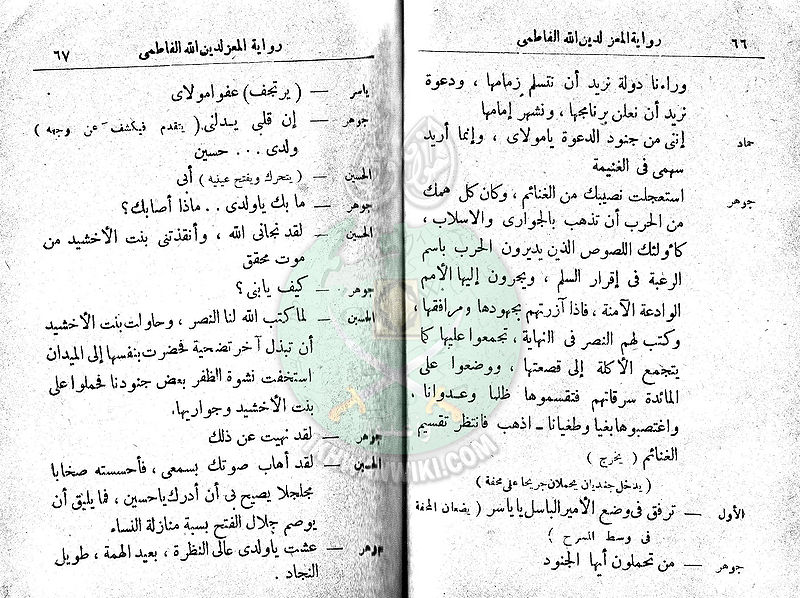 ٦٦ رواية المعز لدين الله الفاطمى
وراءنا دولة نريد أن نتسلم زمامها ، ودعوة
نريد أن نعلن برنامجها ، ونشهر إمامها
حماد إننى من جنود الدعوة يامولاى ، وإنما أريد
سهمى فى الغنيمة
جوهر استعجلت نصيبك من الغنائم ، وكان كل همك
من الحرب أن تذهب بالجوارى والاسلاب ،
كأولئك اللصوص الذين يديرون الحرب باسم
الرغبة فى إقرار السلم ، ويجرون إليها الأمم
الوادعة الآمنة ، فاذا آزرتهم بجهودها ومرافقها ،
وكتب لهم النصر فى النهاية ، تجمعوا عليها كما
يتجمع الأكلة إلى قصعتها ، ووضعوا على
المائدة سرقاتهم فتقسموها ظلما وعدوانا ،
واغتصبوها بغيا وطغيانا ــ اذهب فانتظر تقسيم
الغنائم ( يخرج )
( يدخل جنديان يحملان جريحا على محفة )
الأول — ترفق فى وضع الأمير الباسل يا ياسر ( يضعان المحفة
فى وسط المسرح )
جوهر — من تحملون أيها الجنود
رواية المعز لدين الله الفاطمى ٦٧
ياسر — ( يرتجف ) عفوا مولاى
جوهر — إن قلبى يدلنى ( يتقدم فيكشف عن وجهه )
ولدى . . . حسين
الحسين — ( يتحرك ويفتح عينيه ) أبى
جوهر — ما بك ياولدى . . ماذا أصابك ؟
الحسين — لقد نجانى الله ، وأنقذتنى بنت الأخشيد من
موت محقق
جوهر — كيف يابنى ؟
الحسين — لما كتب الله لنا النصر ، وحاولت بنت الأخشيد
أن تبذل آخر تضحية فحضرت بنفسها إلى الميدان
استخفت نشوة الظفر بعض جنودنا فحملوا على
بنت الأخشيد وجواريها .
جوهر — لقد نهيت عن ذلك
الحسين — لقد أهاب صوتك بسمعى ، فأحسسته صخابا
مجلجلا يصيح بى أن أدرك ياحسين ، فما يليق أن
يوصم جلال الفتح بسبة منازلة النساء
جوهر — عشت ياولدى عالى النظرة ، بعيد الهمة ، طويل
النجاد .
KHALEEJWIKI.COM